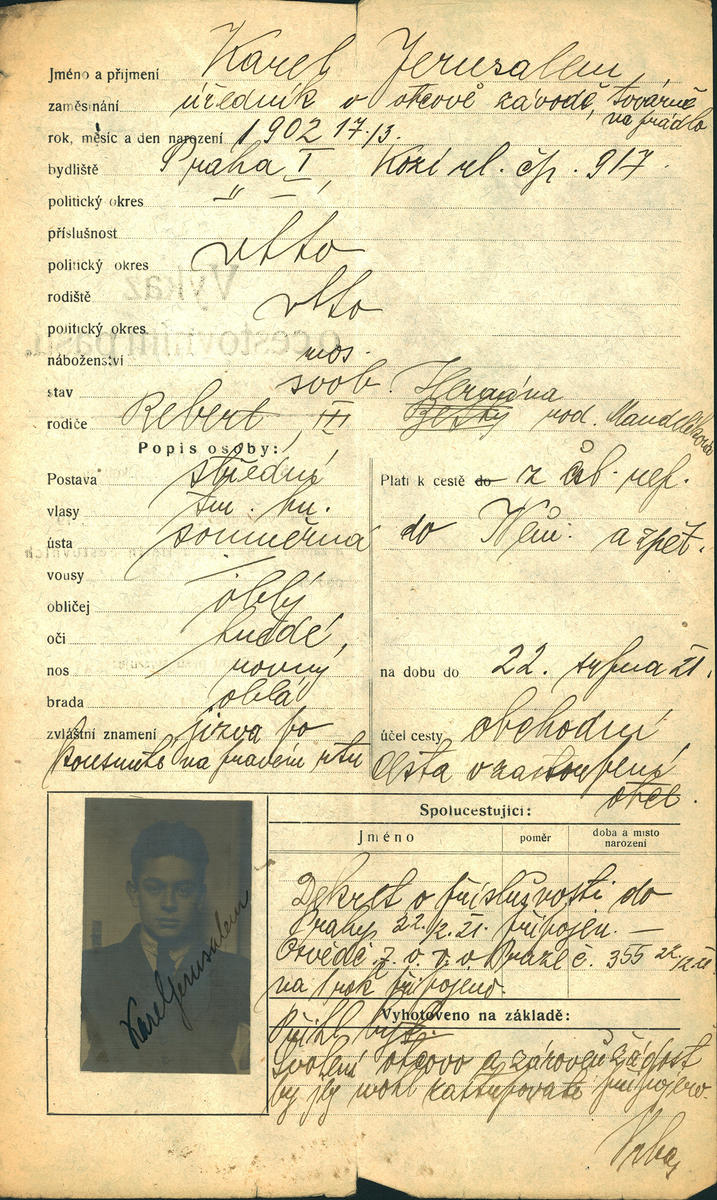 Jméno a příjmení Karel Jerusalem,
zaměstnání úředník v otcově závodě, továrně
na prádlo
rok, měsíc a den narození 1902 17/3.
bydliště Praha I, Kozí ul. čp. 917.
politický okres " –
příslušnost
politický okres dtto
rodiště dtto
politický okres
náboženství mos.
stav svob.
rodiče Robert, Hermína rod.
Popis osoby:
Postava střední
vlasy tm. hn.
ústa souměrná
vousy —
obličej oblý
oči hnědé,
nos rovný
brada oblá
zvláštní znamení jizva po
na pravém rtu
Platí k cestě do z čsl. rep.
do Něm. a zpět.
na dobu do 22. srpna 21.
účel cesty obchodní
cesta v zastoupení
otce.
Spolucestující:
Jméno poměr doba a místo
narození
Dekret o příslušnosti do
Prahy 22./2. 21. připojen. —
Osvědč. z. v. v. v Praze č. 355 22./2. 21
na 1 rok připojeno.
Vyhotoveno na základě:
Přihl.
Svolení otcovo a zároveň žádost
by jej mohl zastupovati připojeno.
Karel Jerusalem
Výkaz
o cestovním pasu.